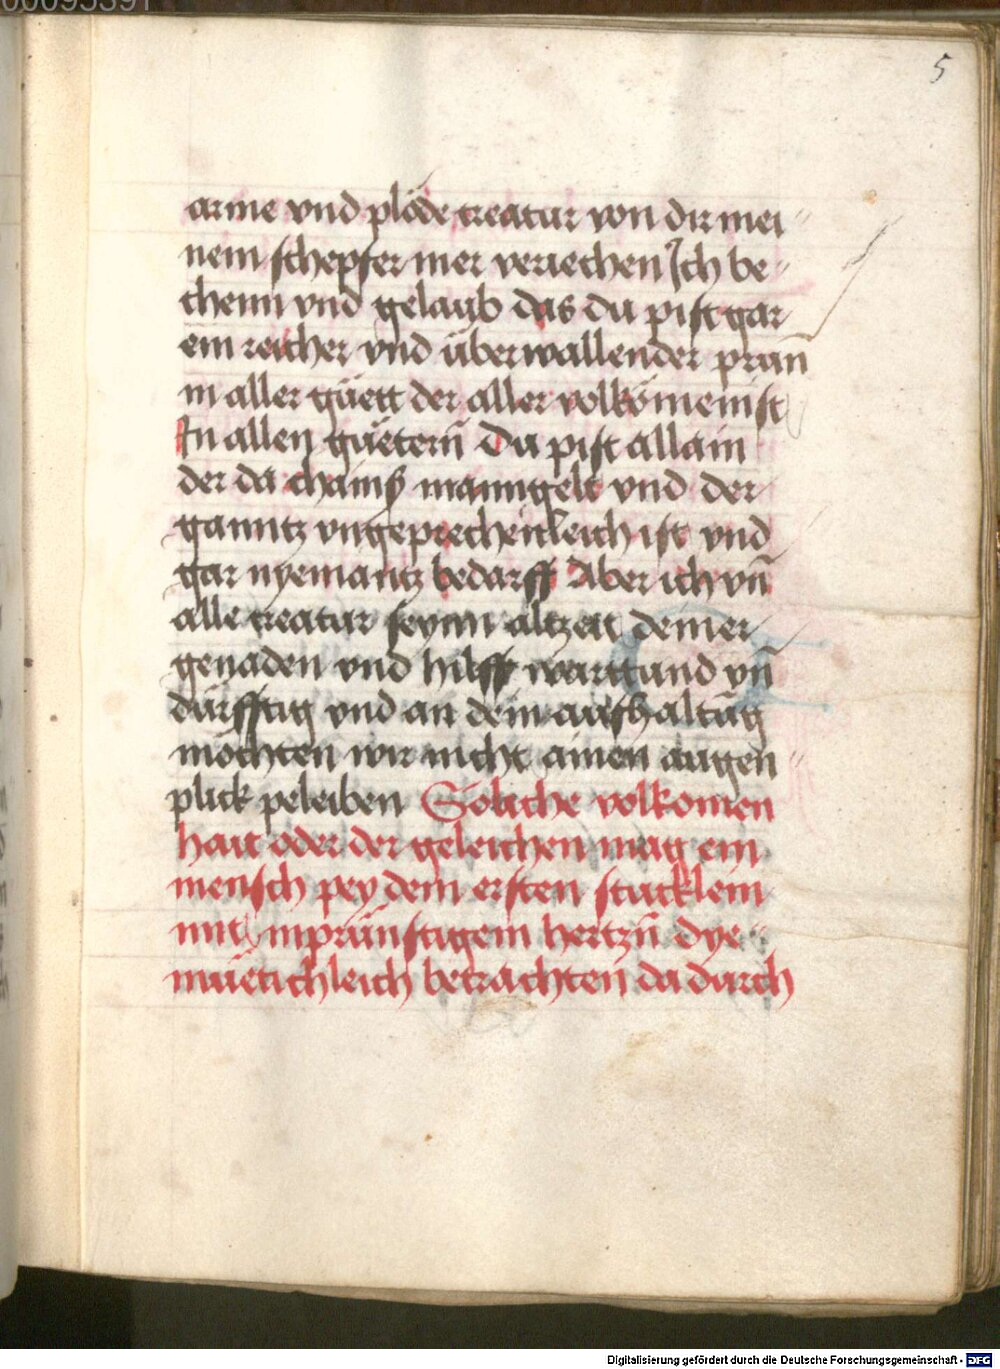 00095391
5
arme vnd plöde creatur von dir mei
nem schepfer mer veriechen Ich be
chenn vnd gelaub das du pist gar
ein reicher vnd überwallender prun̄
in aller güett der aller volkōmeinist
In allen güetern̄ Du pist allain
der da chainß manngelt vnd der
ganntz vngeprechenleich ist vnd
gar nyemantz bedarff Aber ich vn̄
alle creatur seynn altzeit deiner
genaden vnd hilff warttund vn̄
dürfftig vnd an dein aufhaltūg
möchten wir nicht ainen augen
plick peleiben Soliche volkomen
hait oder der geleichen mag ein
mensch pey dem ersten stucklein
mit inprünstigem hertzn̄ dye
müetichleich betrachten da durch
Digitalisierung gefördert durch die Deutsche Forschungsgemeinschaft - DFG